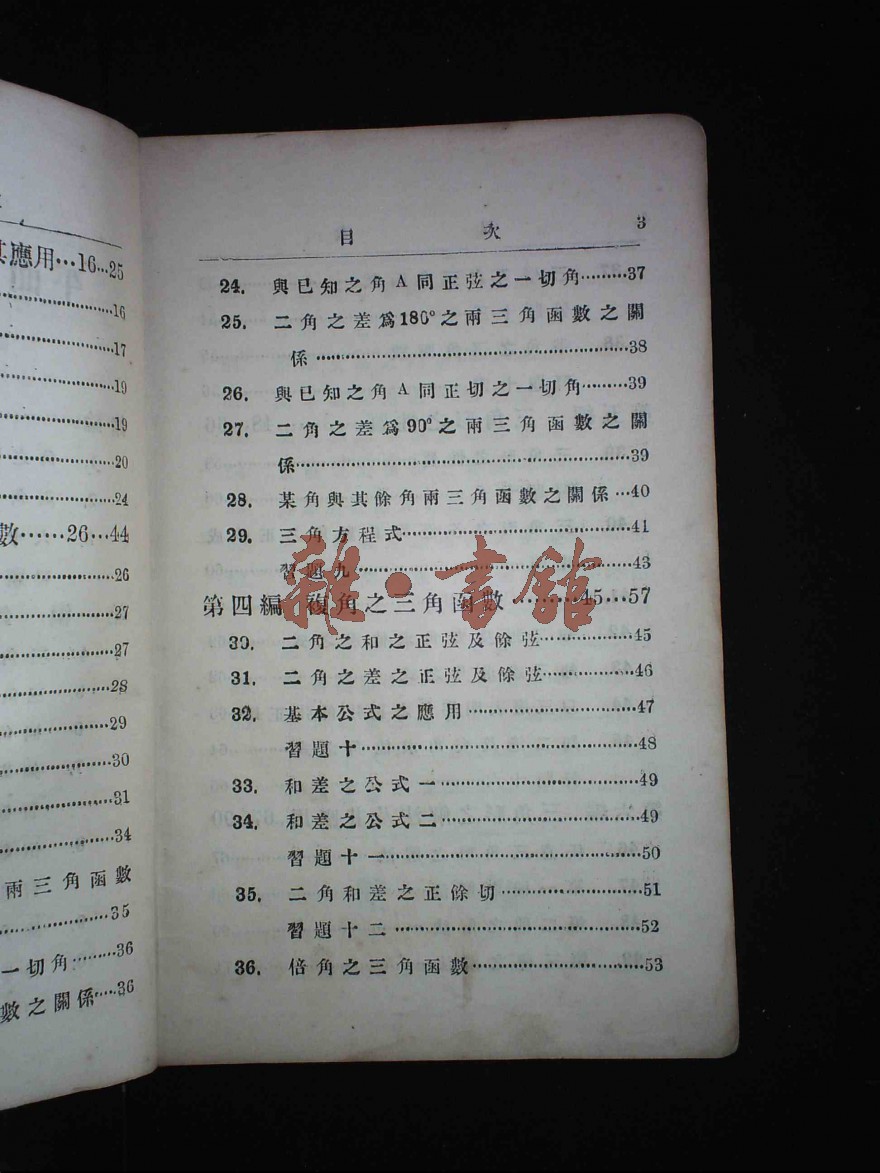 其應用…16…25
16
17
19
19
20
24
數……26…44
26
27
27
28
29
30
31
34
兩三角函數
35
一切角………36
數之關係…36
目 次 3
24. 與已知之角A同正弦之一切角………37
25. 二角之差爲180°之兩三角函數之關
係………38
26. 與已知之角A同正切之一切角………39
27. 二角之差爲90°之兩三角函數之關
係………39
28. 某角與其餘角兩三角函數之關係…40
29. 三角方程式………41
習題九………43
第四編 複角之三角函數………45…57
30. 二角之和之正弦及餘弦………45
31. 二角之差之正弦及餘弦………46
32. 基本公式之應用………47
習題十………48
33. 和差之公式一………49
34. 和差之公式二………49
習題十一………50
35. 二角和差之正餘切………51
習題十二………52
36. 倍角之三角函數………53
雜·書館